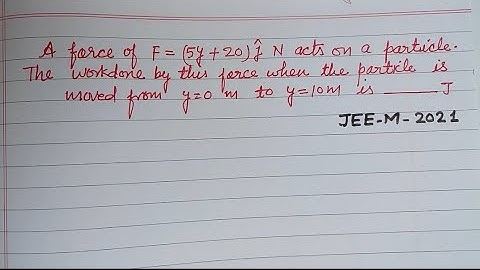 A force of F = (5y + 20) ĵ N acts on a particle.
The workdone by this force when the particle is
moved from y=0 m to y=10m is ______ J
JEE-M-2021